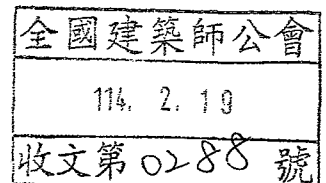 全國建築師公會
114. 2. 19
收文第0288號